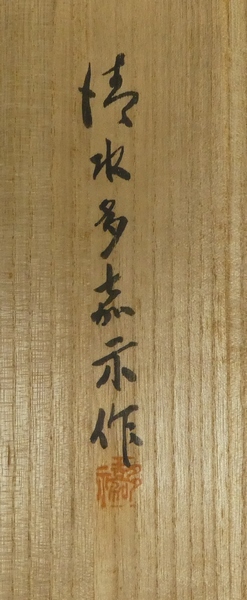 清水多嘉示作